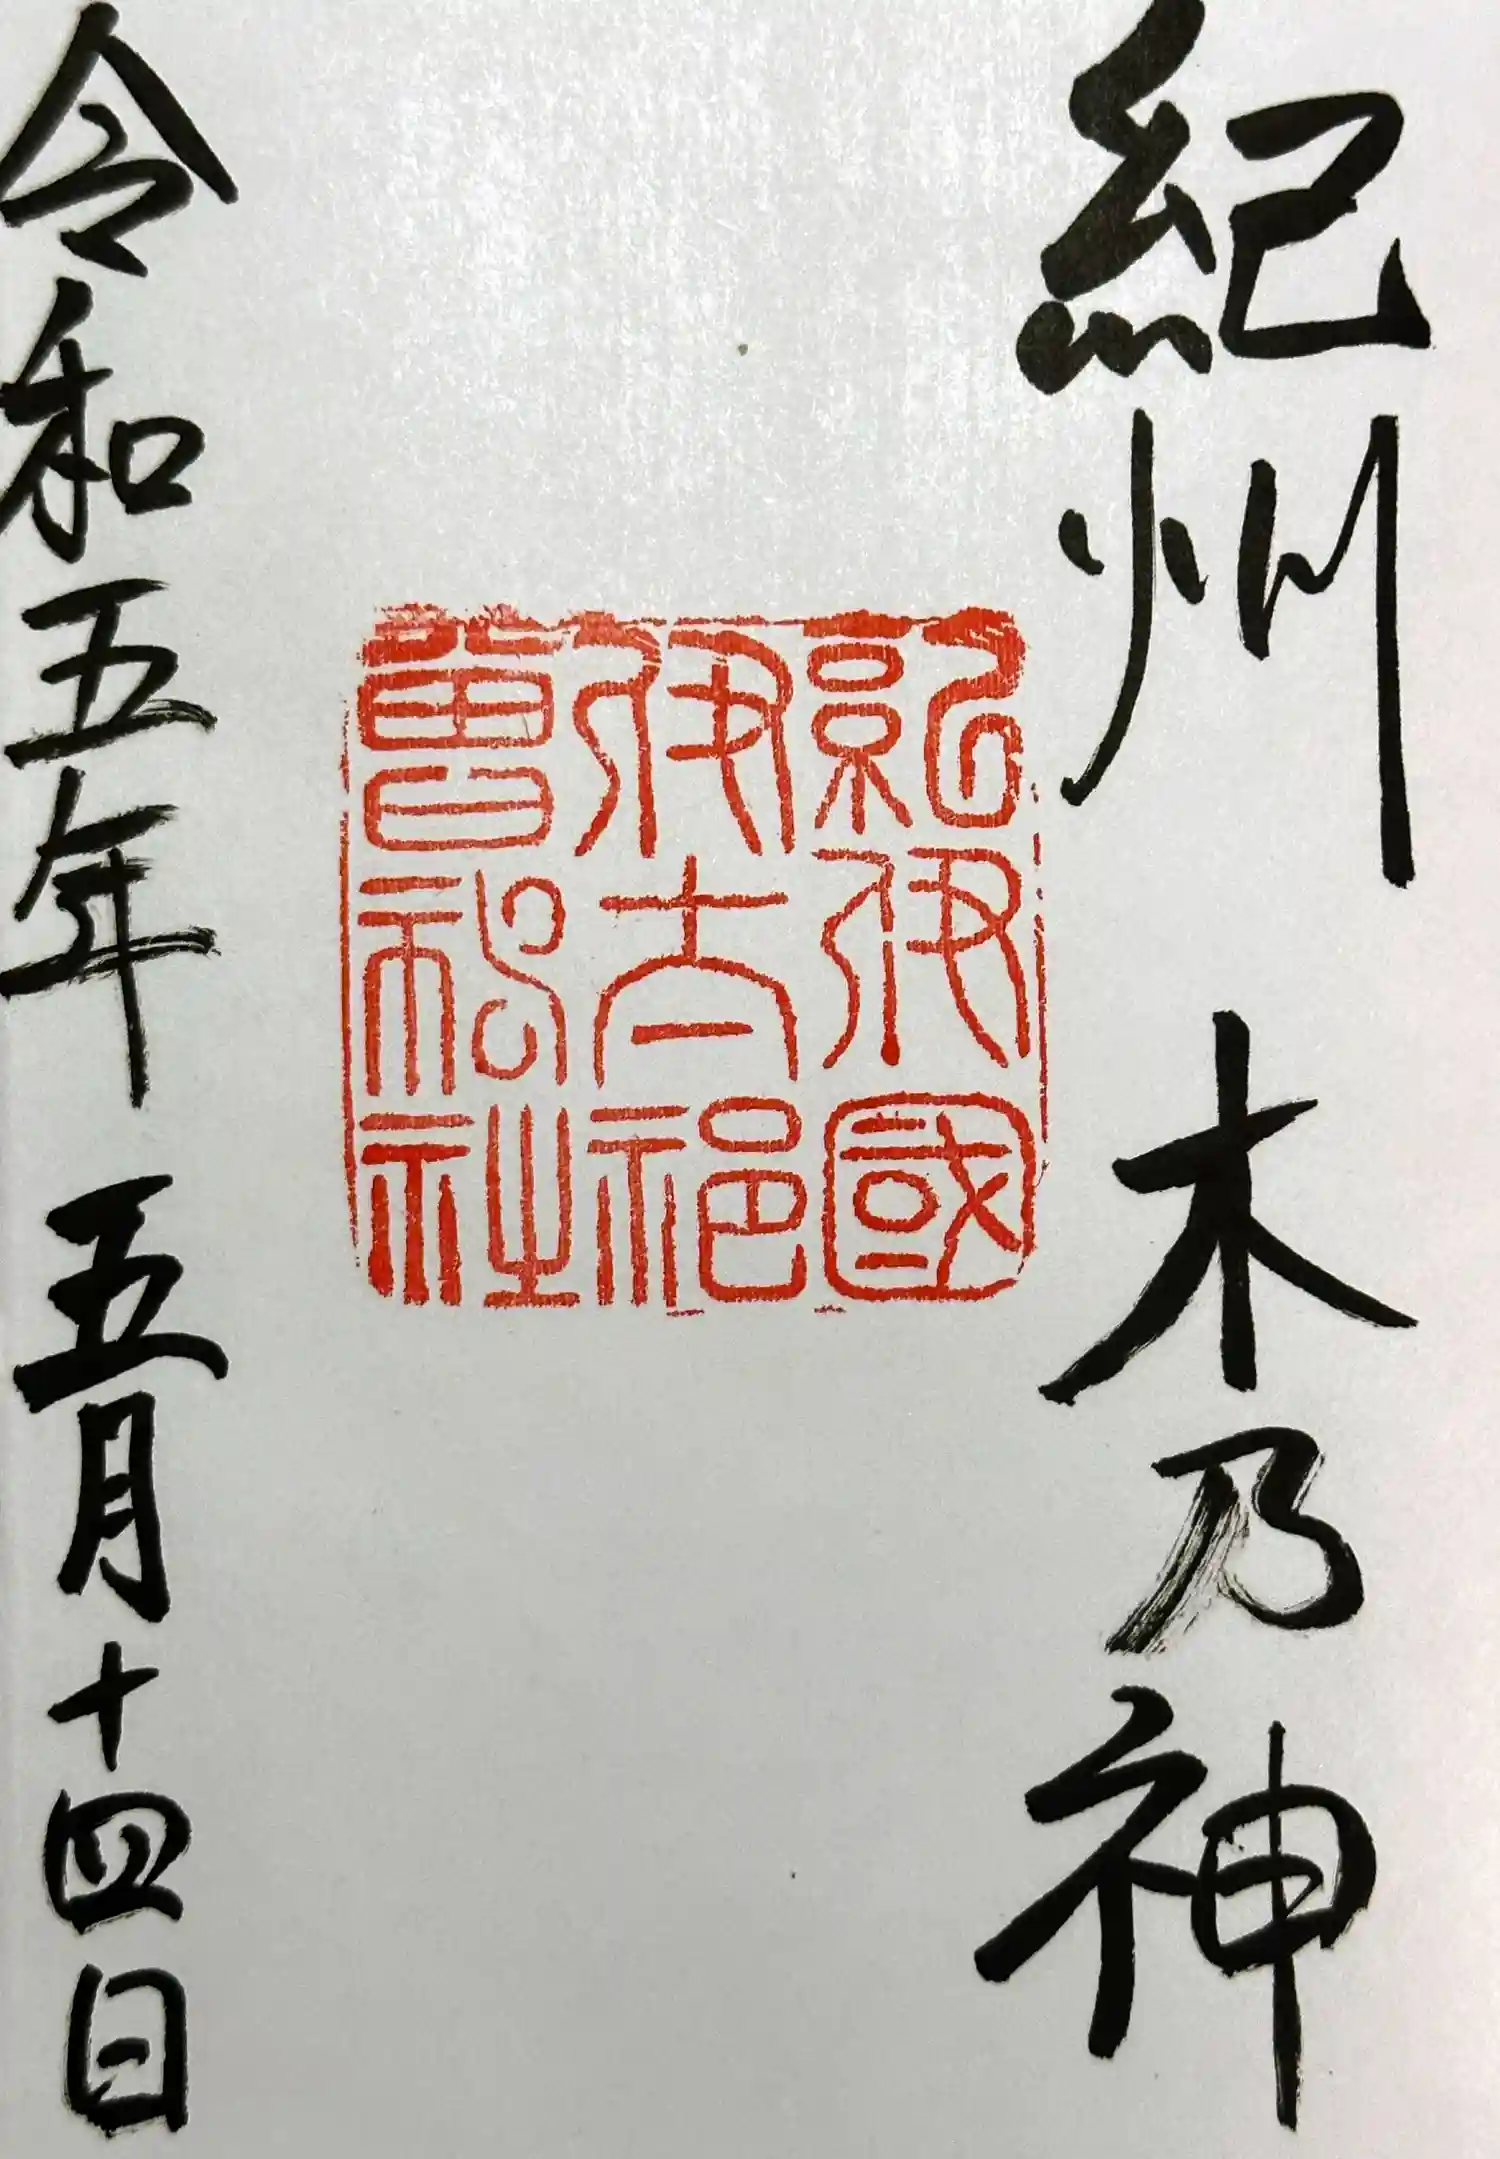 紀州 木乃神
紀伊國
伊太祁
曽神社
令和五年 五月十四日